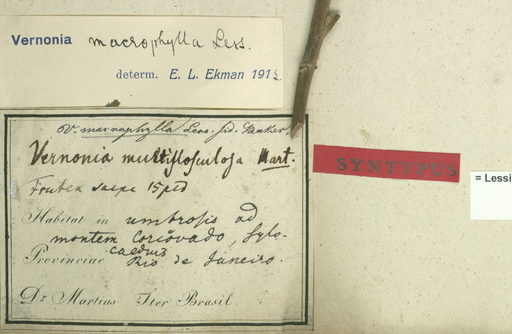 Vernonia macrophylla Less.
determ. E. L. Ekman 191
V. macrophylla Less. fid. Baker.
Vernonia multiflosculosa Mart.
Frutex saepe 15 ped
Habitat in umbrosis ad
montem Corcovado, Sylv.
caeduis
Provinciae Rio de Janeiro.
Dr Martius Iter Brasil.
SYNTYPUS
= Lessi